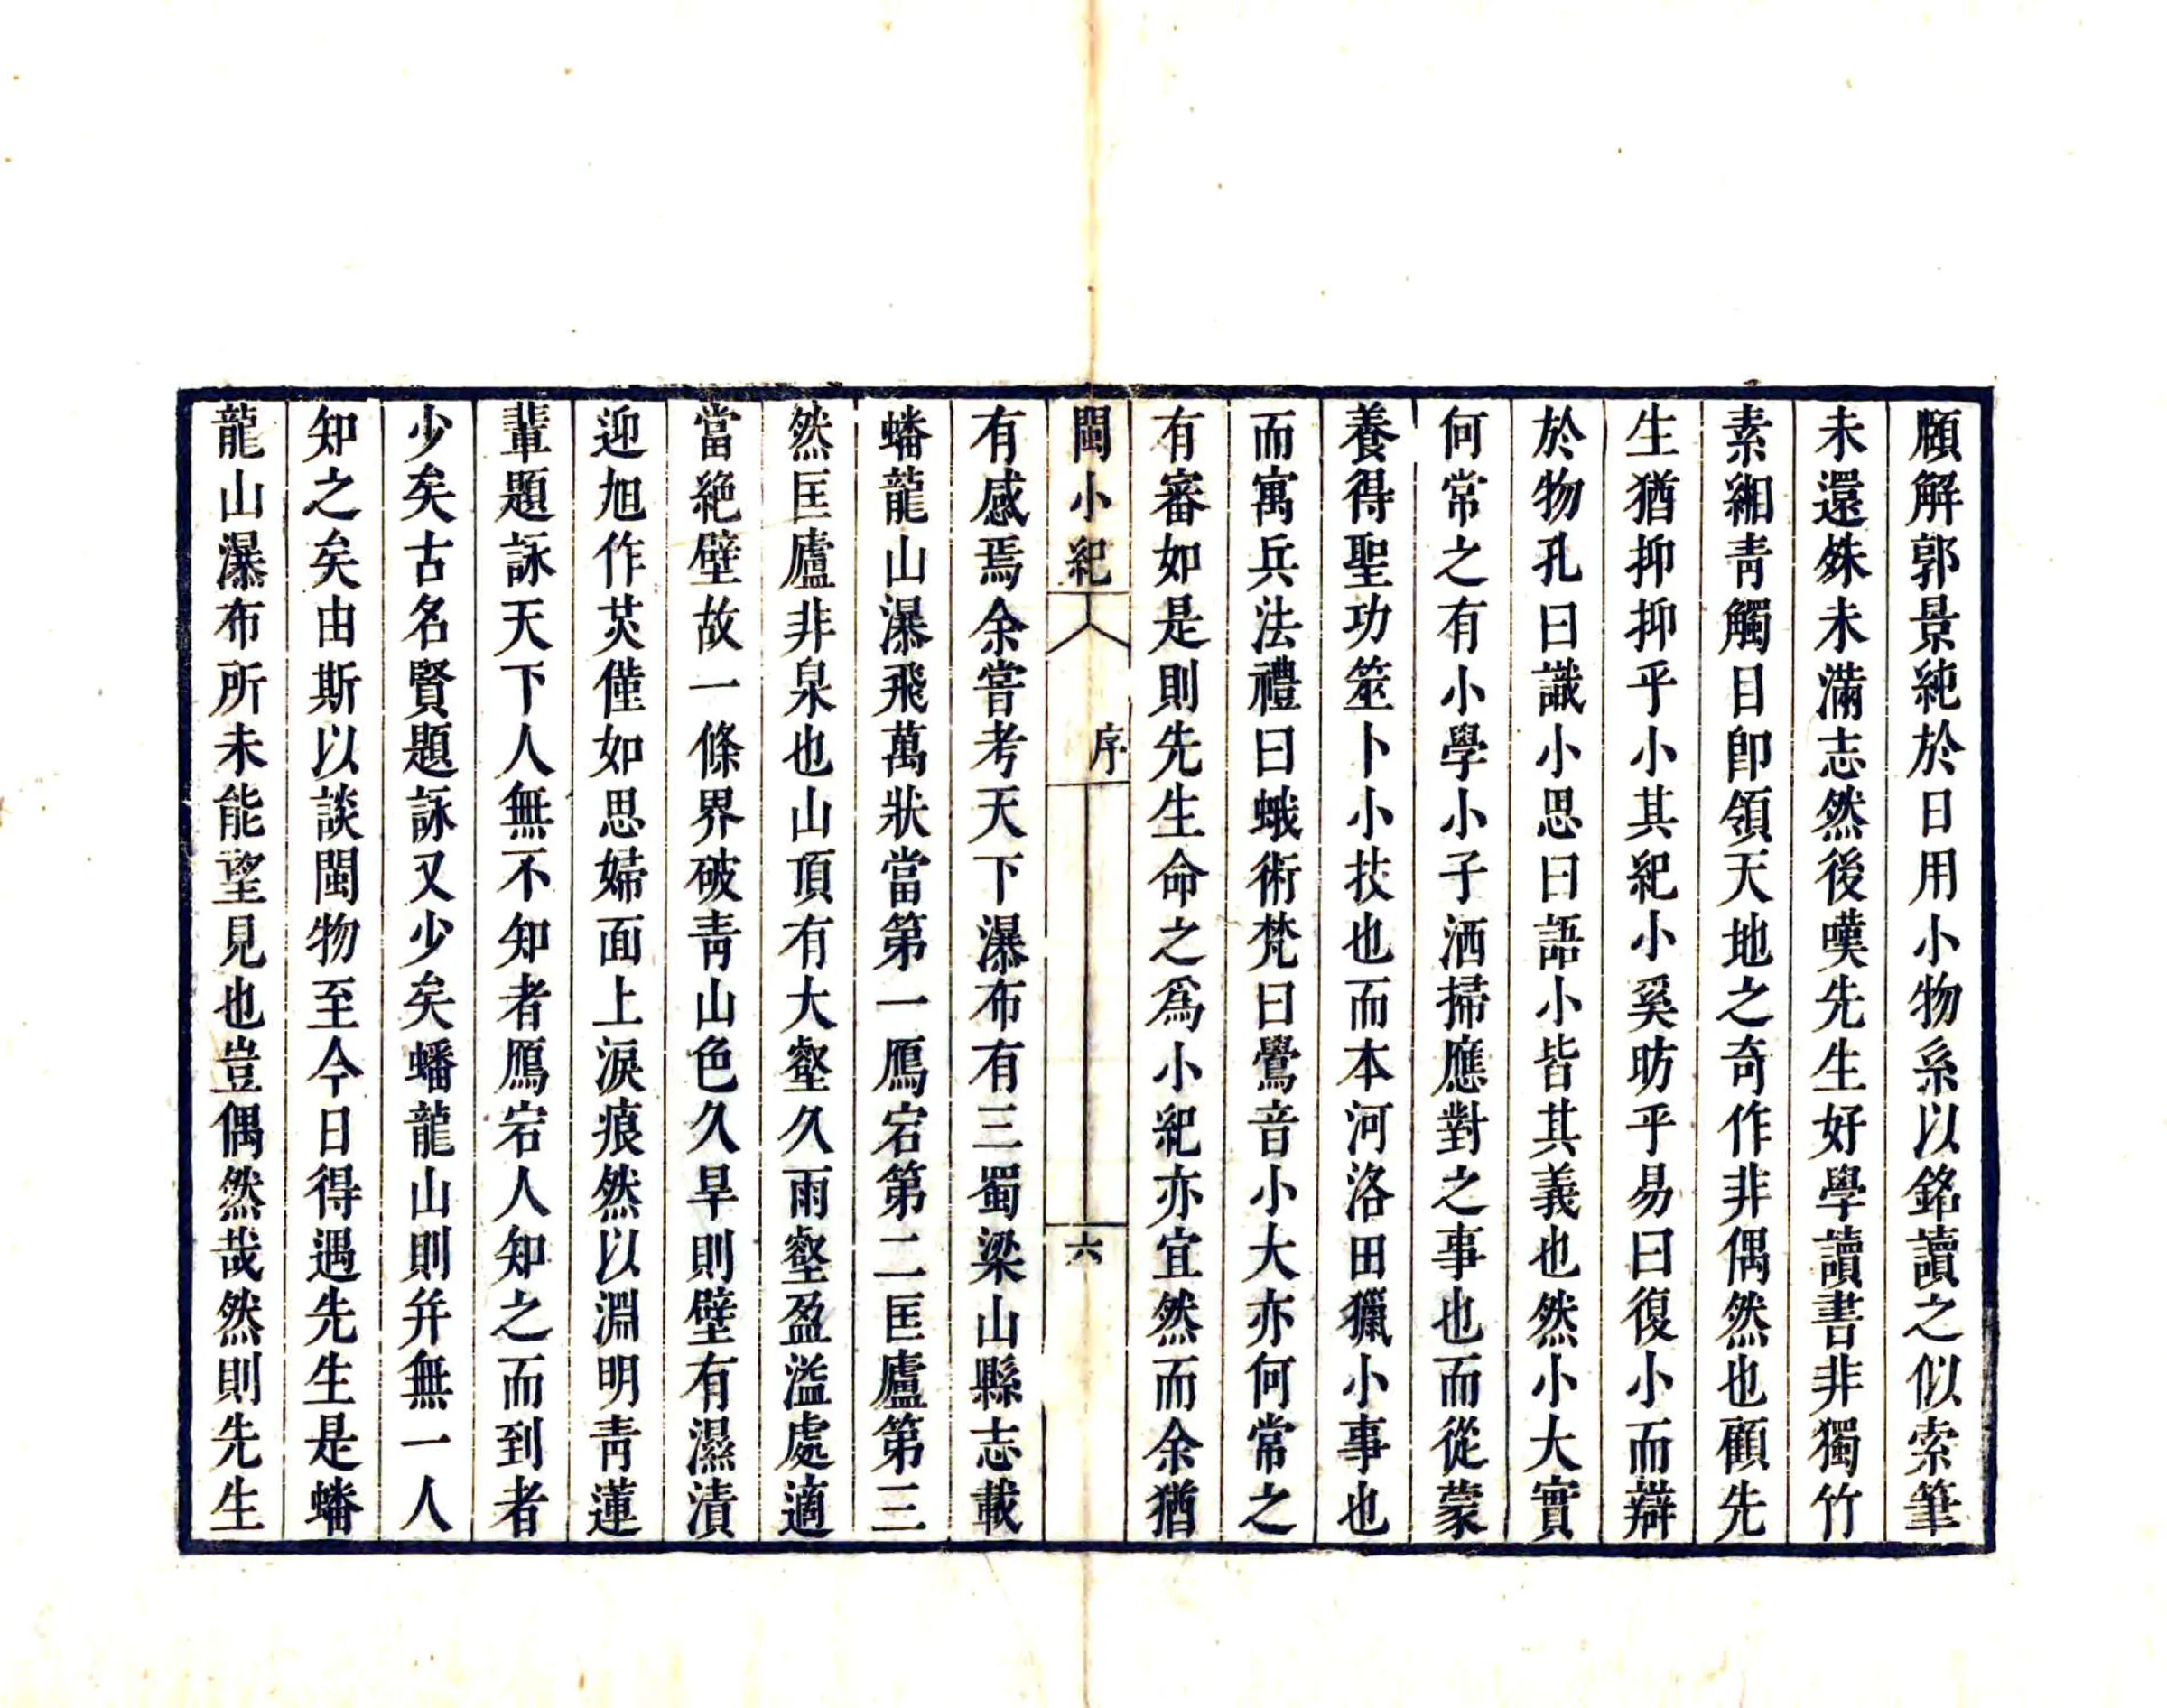 頋解郭景純於日用小物系以銘讀之似索筆
未還姝未滿志然後嘆先生好學讀書非獨竹
素緗靑觸目卽領天地之奇作非偶然也顧先
生猶抑抑乎小其紀小奚昉乎易曰復小而辯
於物孔曰識小思曰語小皆其義也然小大實
何常之有小學小子洒掃應對之事也而從蒙
養得聖功筮卜小技也而本河洛田獵小事也
而寓兵法禮曰蛾術梵曰鶯音小大亦何常之
有審如是則先生命之爲小紀亦宜然而余猶
閩小紀
序
六
有感焉余嘗考天下瀑布有三蜀梁山縣志載
蟠龍山瀑飛萬狀當第一鴈宕第二匡廬第三
然匡廬非泉也山頂有大壑久雨壑盈溢處適
當絶壁故一條界破靑山色久旱則壁有濕漬
迎旭作熒僅如思婦面上淚痕然以淵明靑蓮
輩題詠天下人無不知者鴈宕人知之而到者
少矣古名賢題詠又少矣蟠龍山則幷無一人
知之矣由斯以談閩物至今日得遇先生是蟠
龍山瀑布所未能望見也豈偶然哉然則先生